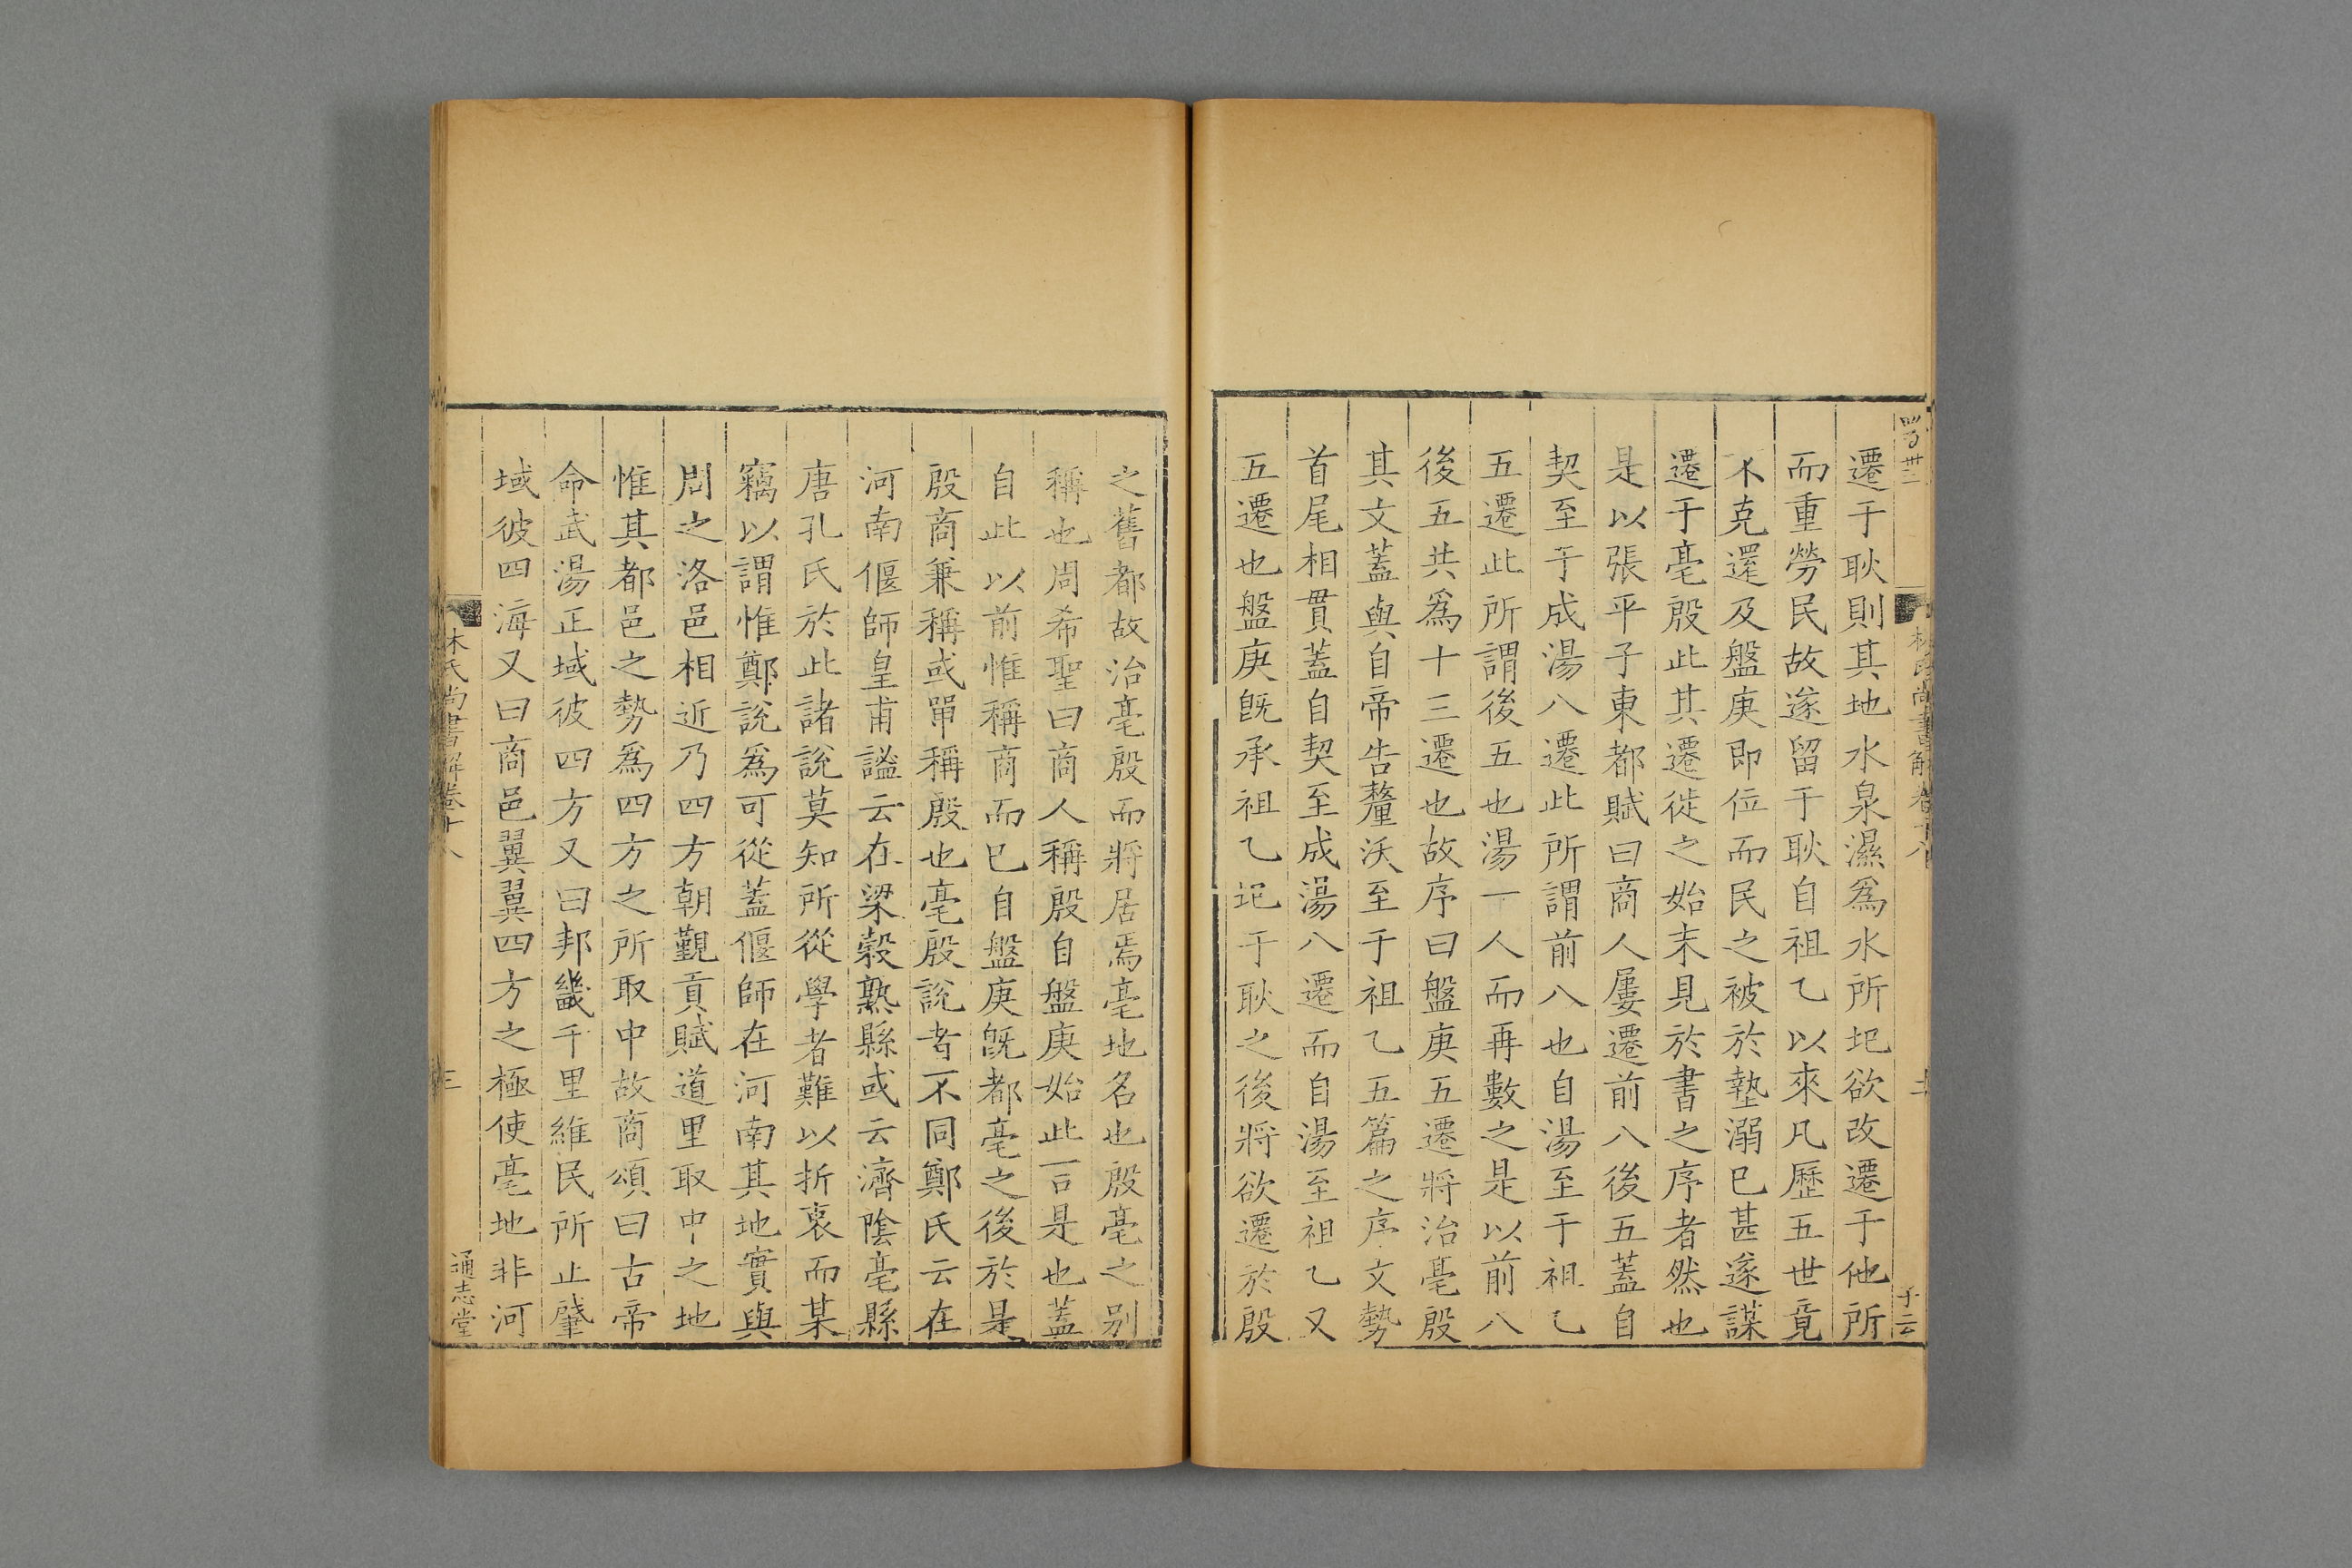 遷于耿則其地水泉濕爲水所圯欲改遷于他所
而重勞民故遂留于耿自祖乙以來凡歷五世竟
不克遷及盤庚即位而民之被於墊溺已甚遂謀
遷于亳殷此其遷徙之始末見於書之序者然也
是以張平子東都賦曰商人屢遷前八後五蓋自
契至于成湯八遷此所謂前八也自湯至于祖乙
五遷此所謂後五也湯一人而再數之是以前八
後五共爲十三遷也故序曰盤庚五遷將治亳殷
其文蓋與自帝告釐沃至于祖乙五篇之序文勢
首尾相貫蓋自契至成湯八遷而自湯至祖乙又
五遷也盤庚旣承祖乙圯于耿之後將欲遷於殷
之舊都故治亳殷而將居焉亳地名也殷亳之别
稱也周希聖曰商人稱殷自盤庚始此言是也蓋
自此以前惟稱商而已自盤庚旣都亳之後於是
殷商兼稱或單稱殷也亳殷說者不同鄭氏云在
河南偃師皇甫謐云在梁榖熟縣或云濟陰亳縣
唐孔氏於此諸說莫知所從學者難以折衷而某
竊以謂惟鄭說爲可從蓋偃師在河南其地實與
周之洛邑相近乃四方朝覲貢賦道里取中之地
惟其都邑之勢爲四方之所取中故商頌曰古帝
命武湯正域彼四方又曰邦畿千里維民所止肇
域彼四海又曰商邑翼翼四方之極使亳地非河
林氏尚書解卷十八
三
通志堂